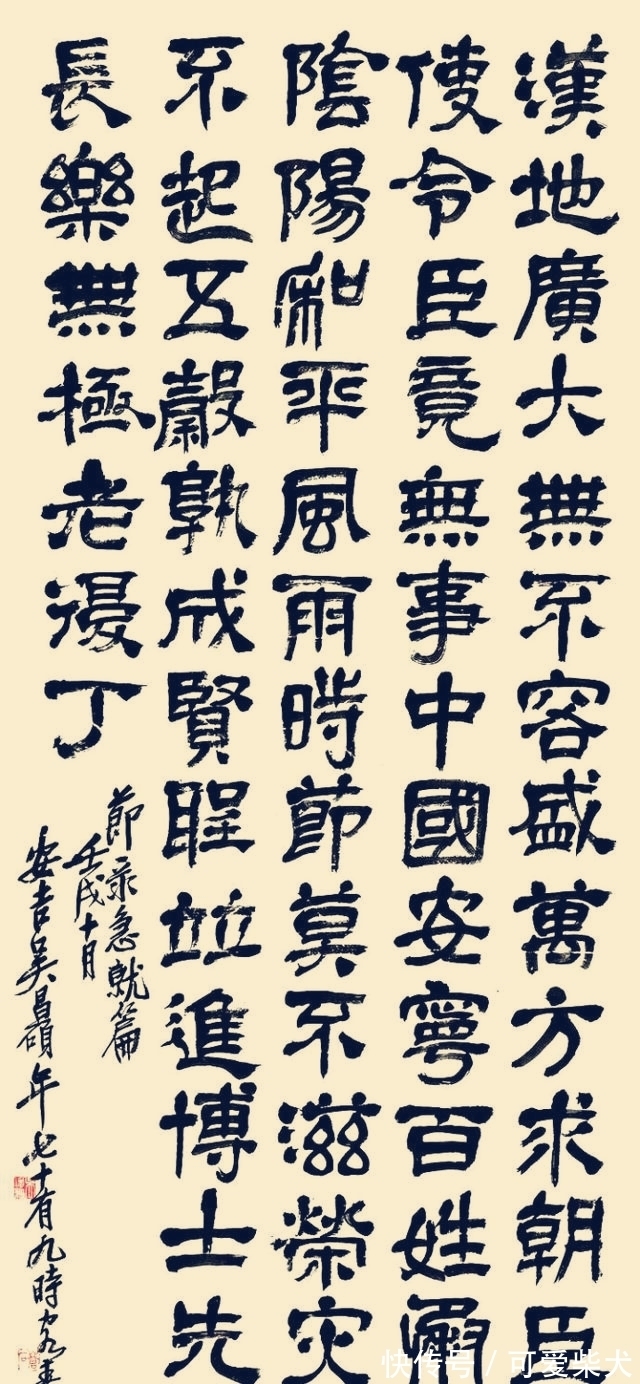 漢地廣大無不容盛萬方來朝臣
使令臣竟無事中國安寧百姓
陰陽和平風雨時節莫不滋榮灾
不起五穀孰成賢聖竝進博士先
長樂無極老復丁
節录急就篇
壬戌十月
安吉吴昌碩年七十有九時客
快传号/可爱柴犬